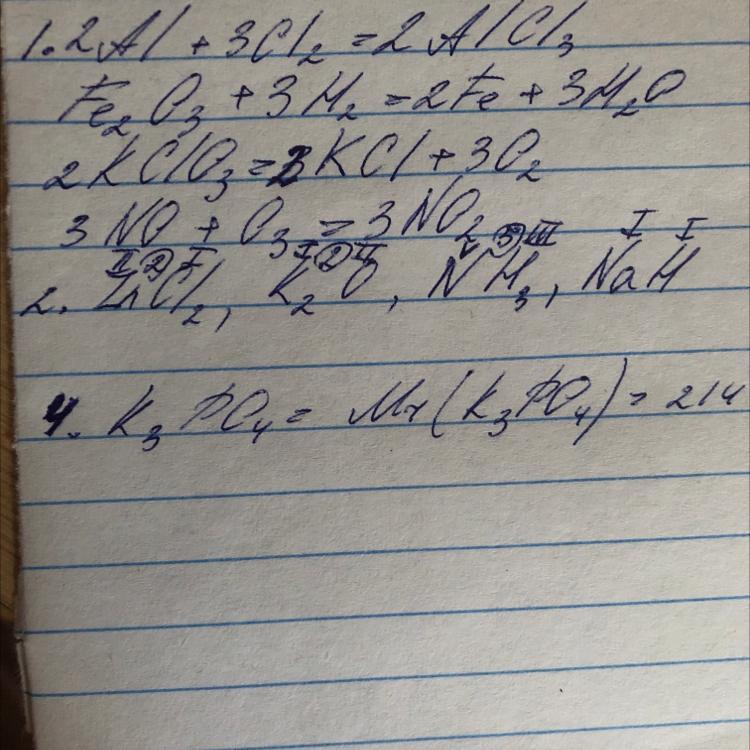 1. 2Al + 3Cl₂ = 2AlCl₃
Fe₂O₃ + 3H₂ = 2Fe + 3H₂O
2KClO₃ = 2KCl + 3O₂
3NO + O₃ = 3NO₂
II ② I I ② II ③ III I I
2. ZnCl₂, K₂O, NH₃, NaH
4. K₃PO₄ = Mr(K₃PO₄) = 214